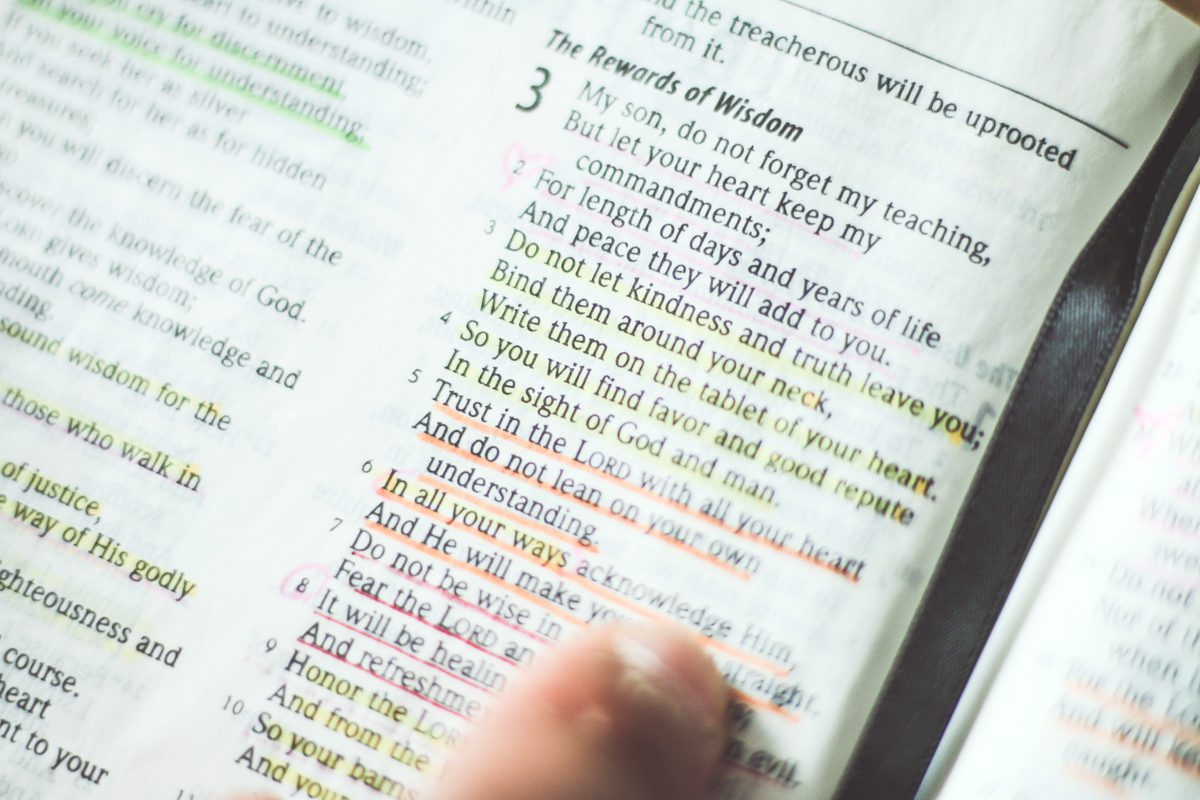 within
er to wisdom,
art to understanding;
you cry for discernment,
your voice for understanding;
If you seek her as silver
And search for her as for hidden
treasures,
you will discern the fear of the
cover the knowledge of God.
LORD gives wisdom;
mouth come knowledge and
nding.
sound wisdom for the
those who walk in
of justice,
e way of His godly
ighteousness and
course.
heart
nt to your
nd the treacherous will be uprooted
from it.
The Rewards of Wisdom
3 My son, do not forget my teaching,
But let your heart keep my
commandments;
2 For length of days and years of life
And peace they will add to you.
3 Do not let kindness and truth leave you;
Bind them around your neck,
Write them on the tablet of your heart.
4 So you will find favor and good repute
In the sight of God and man.
5 Trust in the LORD with all your heart
And do not lean on your own
understanding.
6 In all your ways acknowledge Him,
And He will make you straight.
7 Do not be wise in
Fear the LORD an n evil.
8 It will be healin
And refreshme
9 Honor the LOR
And from the
10 So your barns
And your
11